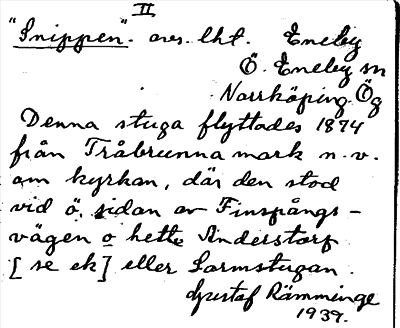 II
"Snippen". avs. lht. Eneby
Ö. Eneby sn
Norrköping Ög
Denna stuga flyttades 1874
från Tråbrunna mark n.v.
om kyrkan, där den stod
vid ö. sidan av Finspångs-
vägen o hette Anderstorp
[se ek] eller Larmstugan.
Gustaf Rämminge
1939.